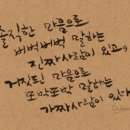 솔직한 마음으로
버벅버벅 말하는
진짜 사람이 있고,
거짓된 마음으로
또박또박 말하는
가짜 사람이 있다